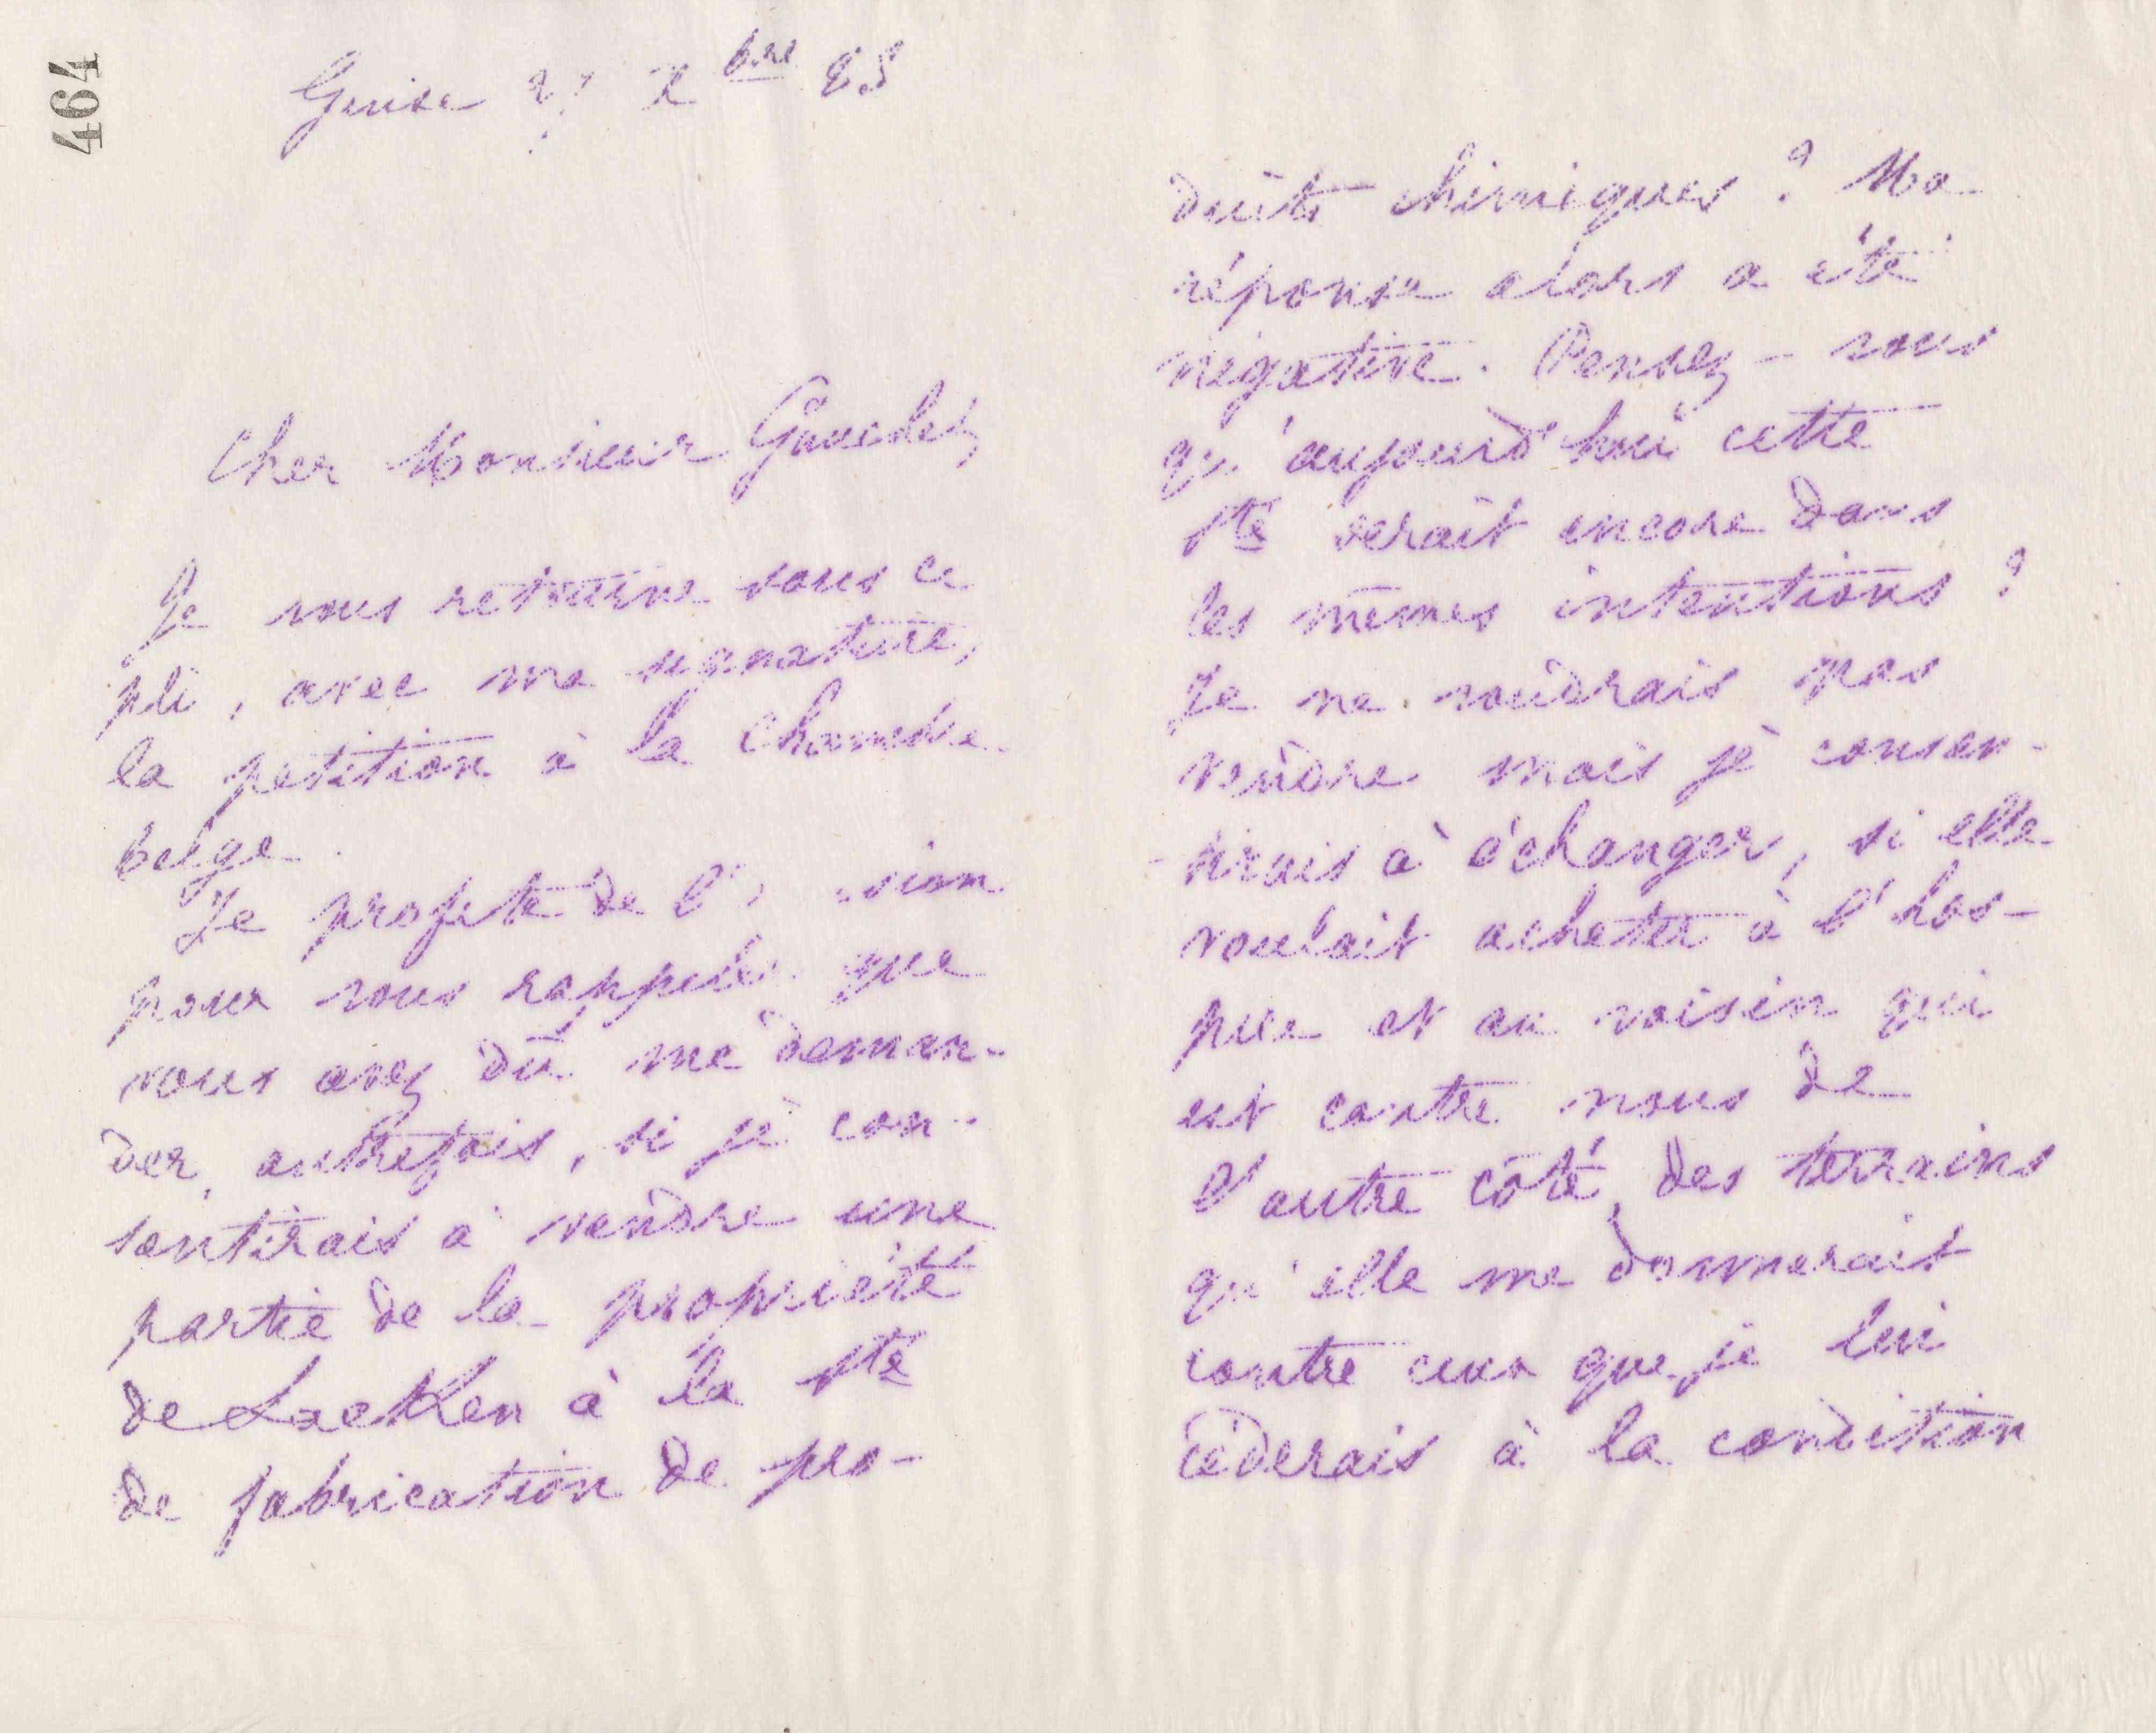 464
Guise Xbre 85
Cher Monsieur
Je vous retourne sous ce
pli, avec ma signature,
la pétition à la Chambre
belge.
Je profite de l'
pour vous rappeler que
vous avez dû me deman-
der, autrefois, si je con-
sentirais à vendre une
partie de la propriété
de Laeken à la Sté
de fabrication de pro-
duits chimiques ? Ma
réponse alors a été
négative. Pensez-vous
qu'aujourd'hui cette
Sté serait encore dans
les mêmes intentions ?
Je ne voudrais pas
vendre mais je consen-
tirais à échanger, si elle
voulait acheter à l'hos-
pice et au voisin qui
est contre nous de
l'autre côté, des terrains
qu'elle me donnerait
contre ceux que je lui
céderais à la condition